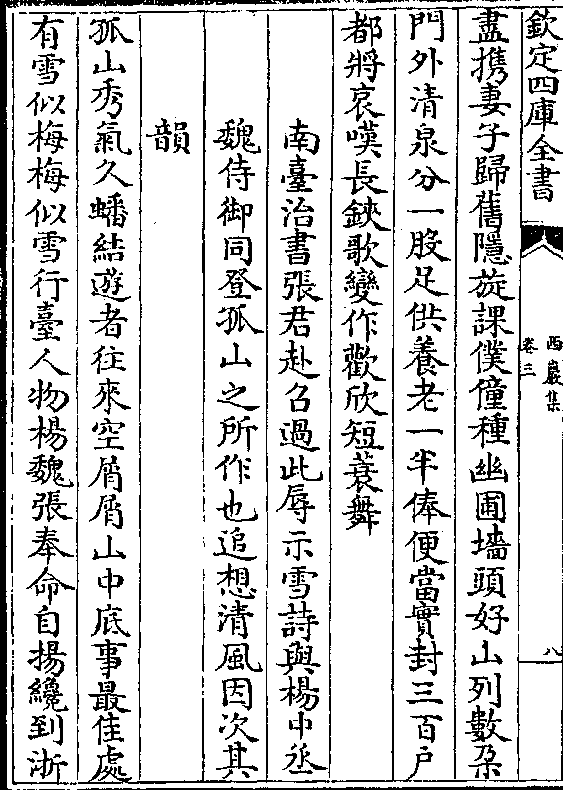 欽定四庫全書
西巖集
卷三
八
盡携妻子歸舊隱旋課僕僮種幽圃墻頭好山列數朶
門外清泉分一股足供養老一半俸便當實封三百戸
都將哀嘆長鋏歌變作歡欣短蓑舞
南臺治書張君赴召過此辱示雪詩與楊中丞
魏侍御同登孤山之所作也追想清風因次其
韻
孤山秀氣久蟠結遊者往來空屑屑山中底事最佳處
有雪似梅梅似雪行臺人物楊魏張奉命自揚纔到浙